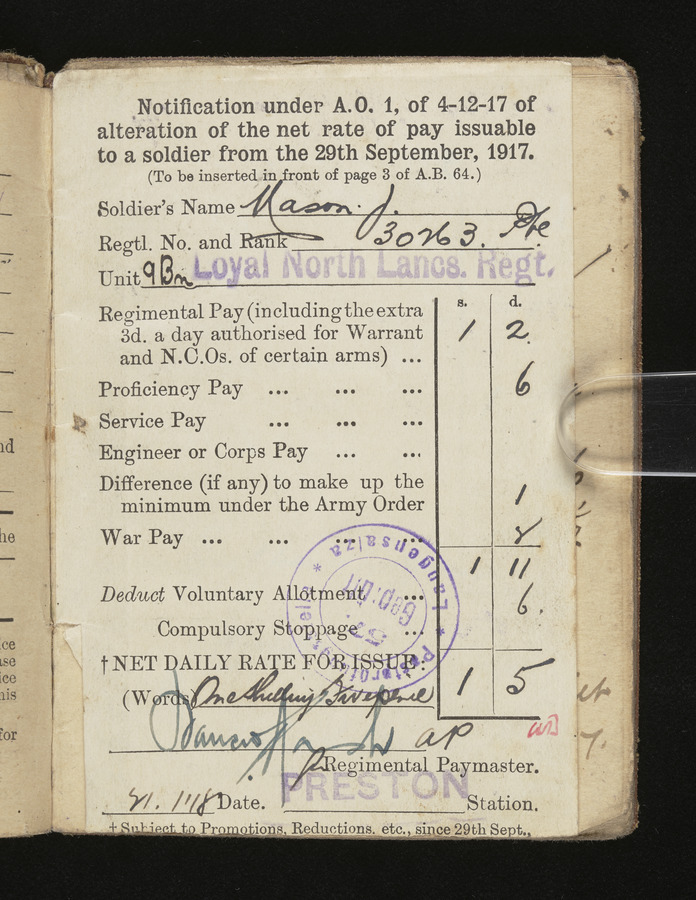 Notification under A.O. 1, of 4-12-17 of
alteration of the net rate of pay issuable
to a soldier from the 29th September, 1917.
(To be inserted in front of page 3 of A.B. 64.)
Soldier's Name Mason. J.
Regtl. No. and Rank 30263. Pte
Unit 9 Bn Loyal North Lancs. Regt.
s. d.
Regimental Pay (including the extra
3d. a day authorised for Warrant 1 2
and N.C.Os. of certain arms) ...
Proficiency Pay ... ... ... 6
Service Pay ... ... ...
Engineer or Corps Pay ... ...
Difference (if any) to make up the
minimum under the Army Order 1
War Pay ... ... ... ... 2
1 11
Deduct Voluntary Allotment ... 6.
Compulsory Stoppage ...
† NET DAILY RATE FOR ISSUE: 1 5
(Words) One Shilling Fivepence
Langensalza
AP
Regimental Paymaster.
PRESTON
21. 1 18 Date. Station.
† Subject to Promotions, Reductions, etc., since 29th Sept.,